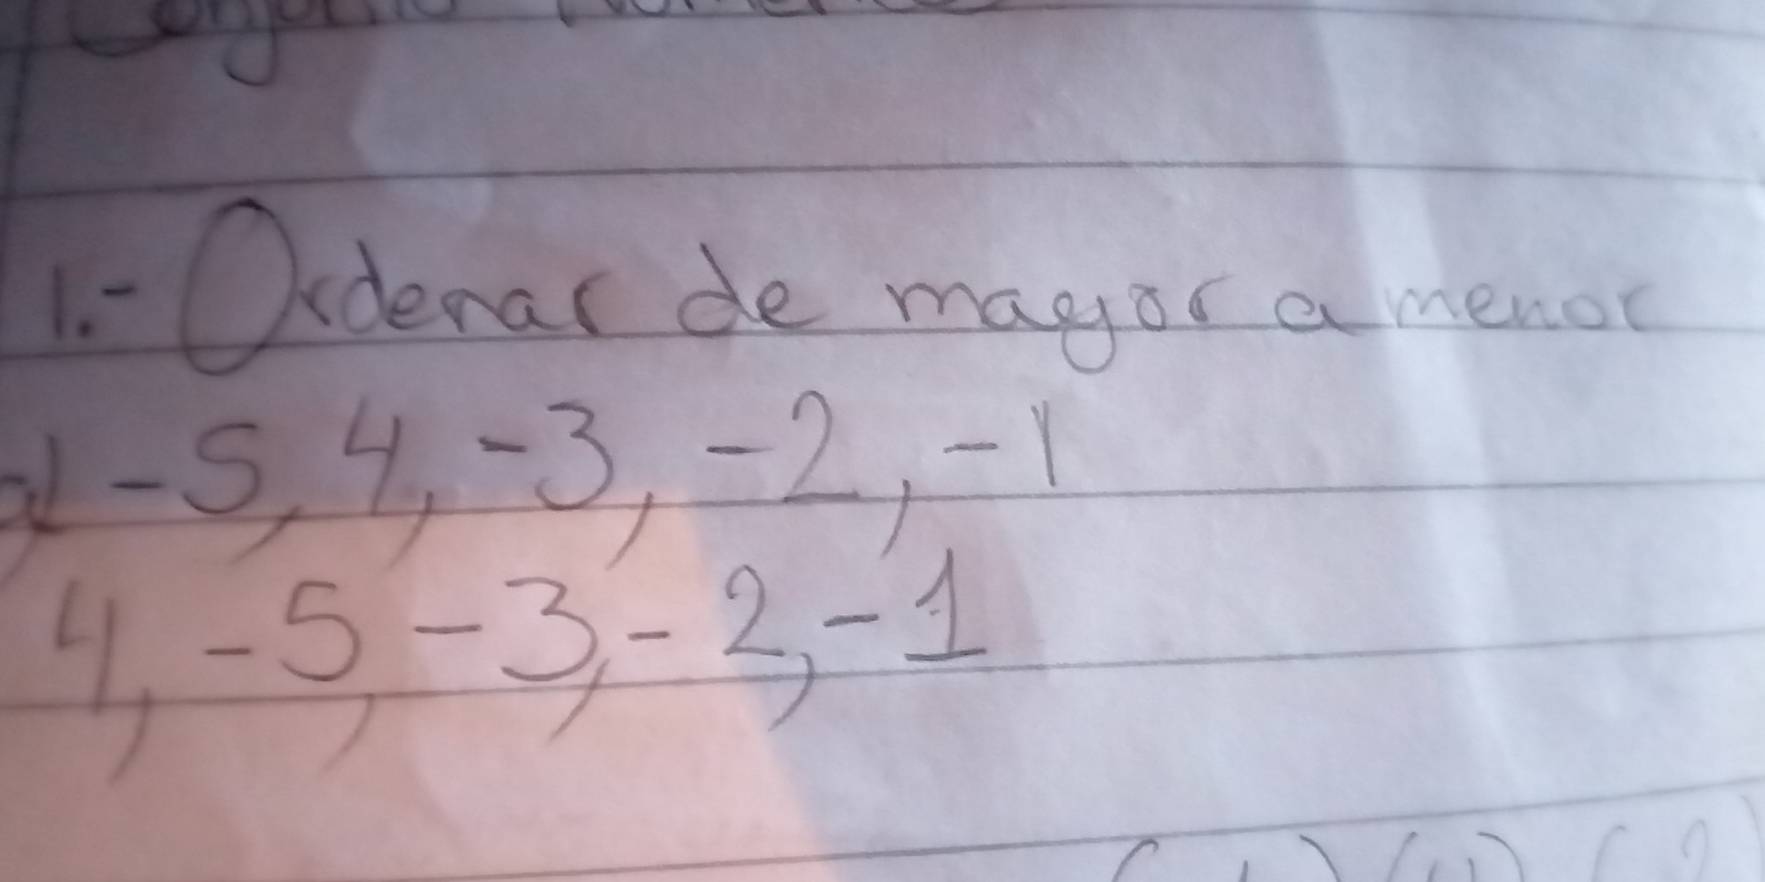 1.- Ordenar de mayor a menor
a) -5, 4, -3, -2, -1
4, -5, -3, -2, -1